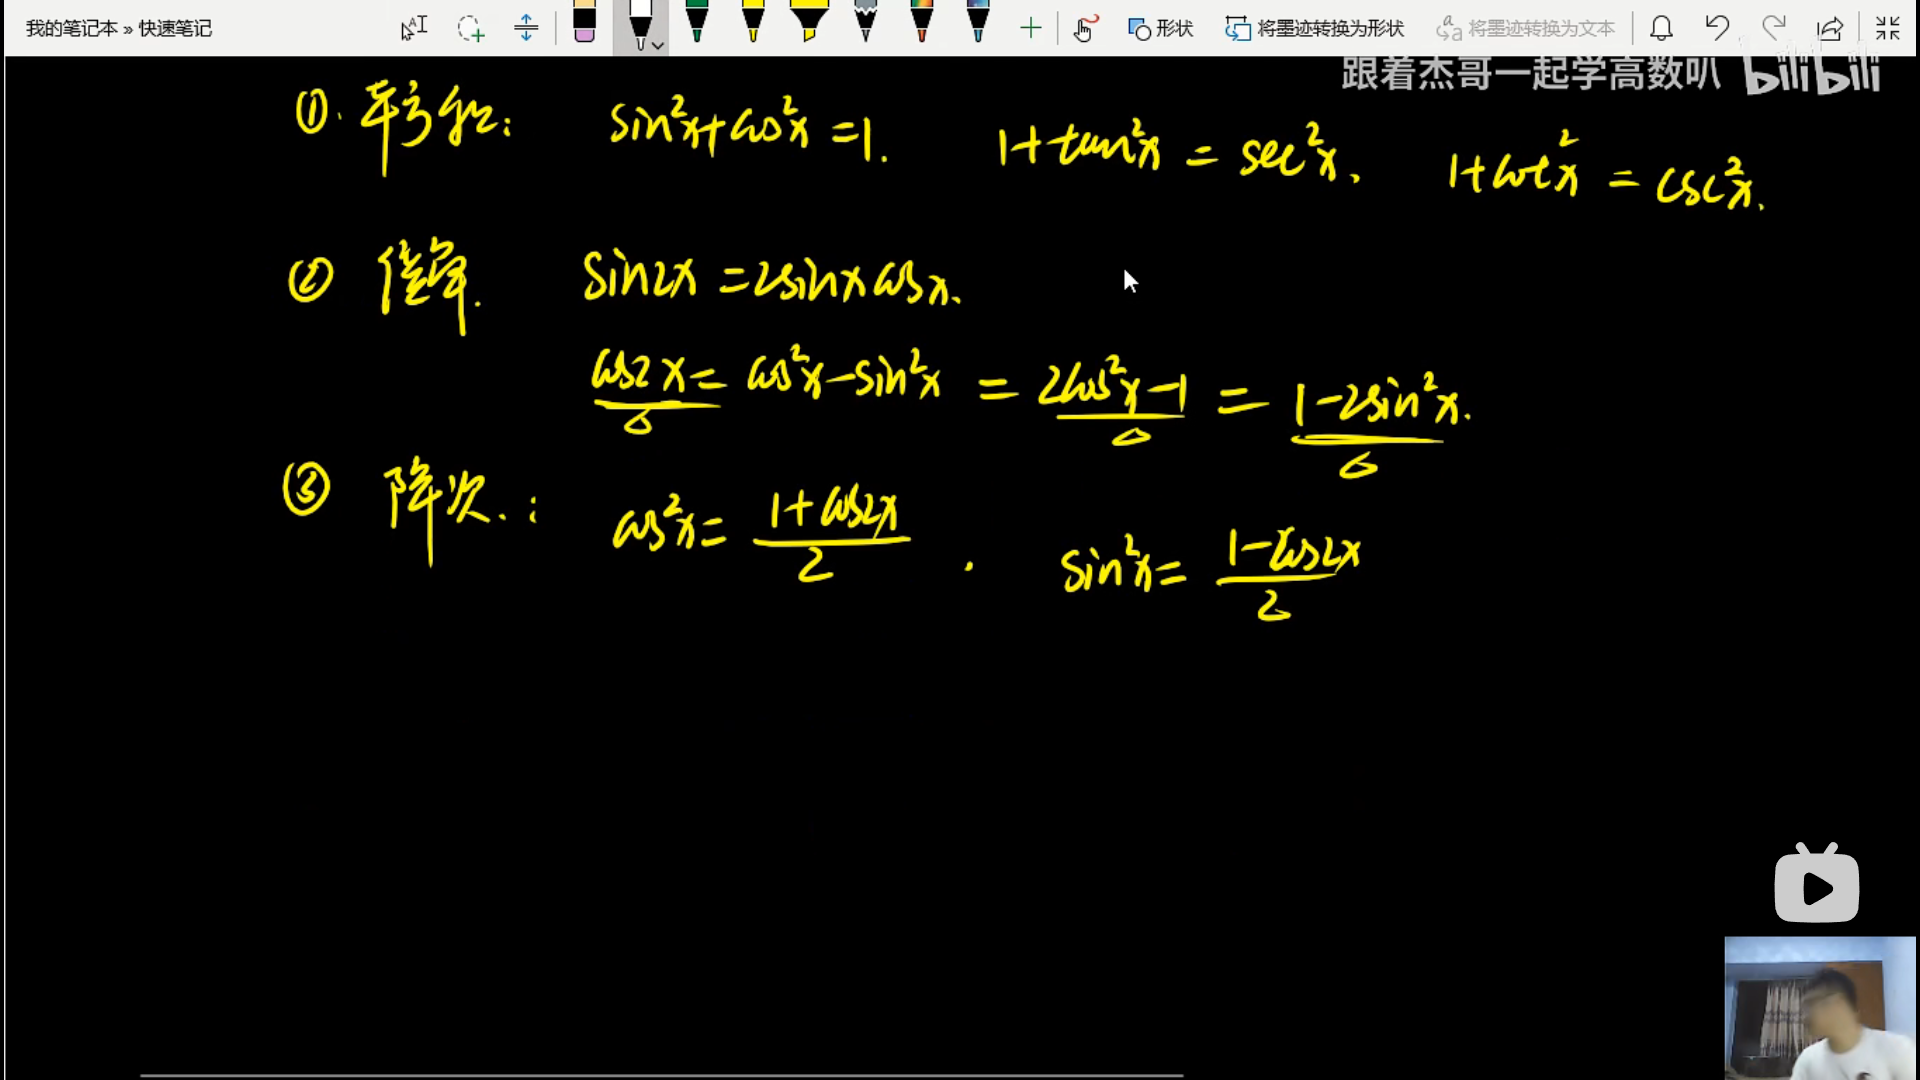 我的笔记本 » 快速笔记
形状 将墨迹转换为形状 将墨迹转换为文本
跟着杰哥一起学高数叭 bilibili
①. 平方和: sin²x+cos²x=1. 1+tan²x = sec²x. 1+cot²x = csc²x.
② 倍角. sin2x=2sinxcosx.
cos2x= cos²x-sin²x = 2cos²x-1 = 1-2sin²x.
③ 降次.: cos²x= (1+cos2x)/2 . sin²x= (1-cos2x)/2